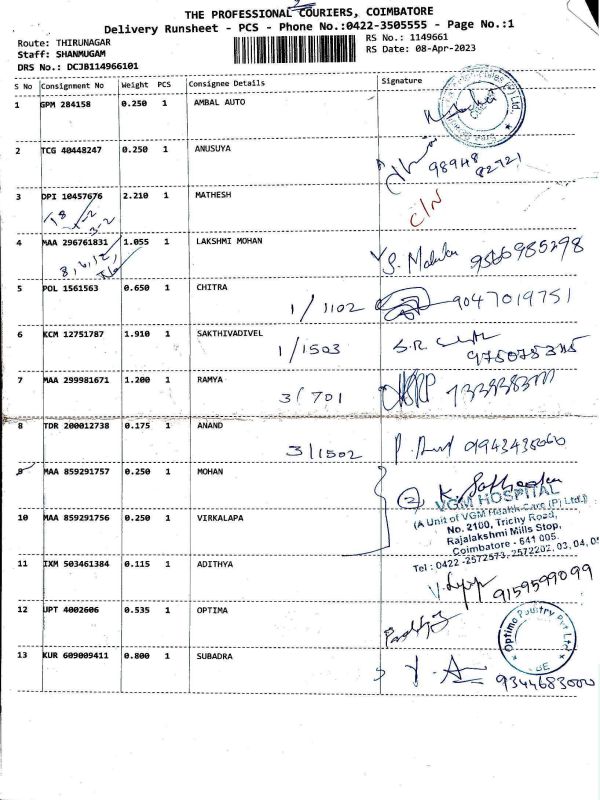 THE PROFESSIONAL COURIERS, COIMBATORE
Delivery Runsheet - PCS - Phone No.:0422-3505555 - Page No.:1
Route: THIRUNAGAR
Staff: SHANMUGAM
DRS No.: DCJB114966101
RS No.: 1149661
RS Date: 08-Apr-2023
S No Consignment No Weight PCS Consignee Details Signature
1 GPM 284158 0.250 1 AMBAL AUTO
2 TCG 40448247 0.250 1 ANUSUYA
98948
82721
3 DPI 10457676 2.210 1 MATHESH C/N
4 MAA 296761831 1.055 1 LAKSHMI MOHAN 9566985298
5 POL 1561563 0.650 1 CHITRA
1/1102 9047019751
6 KCM 12751787 1.910 1 SAKTHIVADIVEL
1/1503 S.R.
7 MAA 299981671 1.200 1 RAMYA
3/701
8 TDR 200012738 0.175 1 ANAND
3/1502
9 MAA 859291757 0.250 1 MOHAN
2
VGM HOSPITAL
(A Unit of VGM Health Care (P) Ltd.)
No. 2100, Trichy Road,
Rajalakshmi Mills Stop,
Coimbatore - 641 005.
Tel : 0422 -2572573, 2572202, 03, 04, 05
10 MAA 859291756 0.250 1 VIRKALAPA
11 IXM 503461384 0.115 1 ADITHYA
9159599099
12 UPT 4002606 0.535 1 OPTIMA
Optimo Poultry Pvt Ltd
13 KUR 609009411 0.800 1 SUBADRA
9344683000